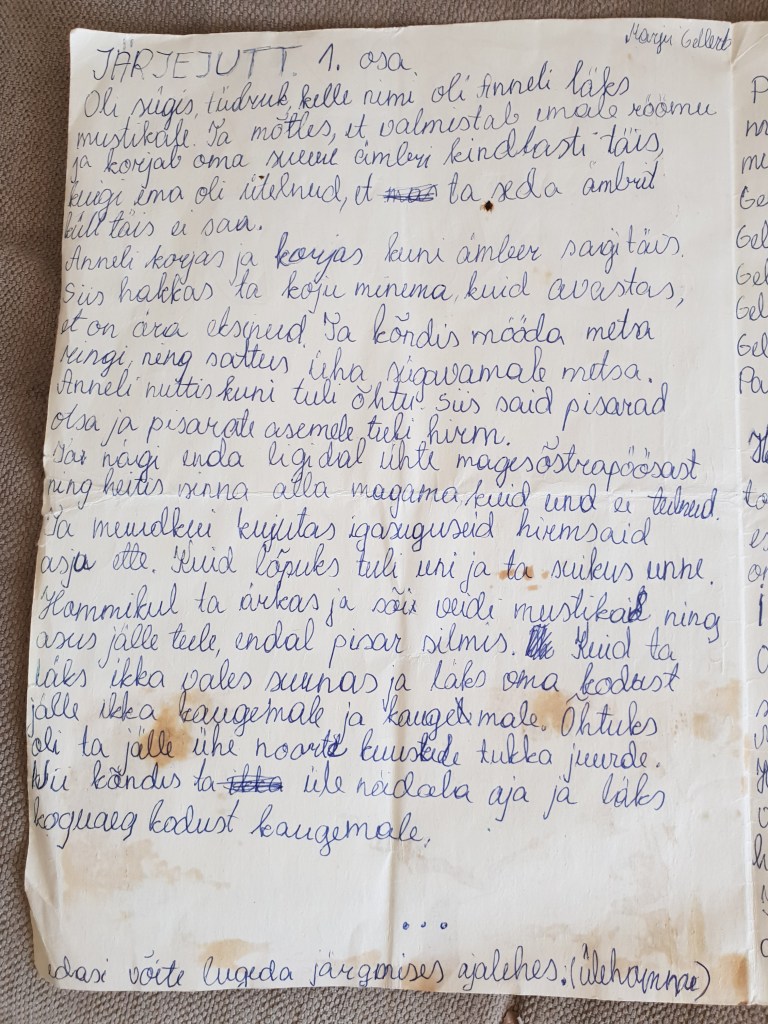 Marju Gellert
JÄRJEJUTT. 1. osa
Oli sügis, tüdruk, kelle nimi oli Anneli läks
mustikale. Ta mõtles, et valmistab emale rõõmu
ja korjab oma suure ämbri kindlasti täis,
kuigi ema oli ütelnud, et ta seda ämbrit
küll täis ei saa.
Anneli korjas ja korjas kuni ämber saigi täis.
Siis hakkas ta koju minema, kuid avastas,
et on ära eksinud. Ta kõndis mööda metsa
ringi, ning sattus üha sügavamale metsa.
Anneli nuttis kuni tuli õhtu. Siis said pisarad
otsa ja pisarate asemele tuli hirm.
Ta nägi enda ligidal ühte magesõstrapõõsast
ning heitis sinna alla magama, kuid und ei tulnud.
Ta muudkui kujutas igasuguseid hirmsaid
asju ette. Kuid lõpuks tuli uni ja ta suikus unne.
Hommikul ta ärkas ja sõi veidi mustikaid ning
asus jälle teele, endal pisar silmis. Kuid ta
läks ikka vales suunas ja läks oma kodust
jälle ikka kaugemale ja kaugemale. Õhtuks
oli ta jälle ühe noorte kuuskede tukka juurde.
Nii kõndis ta üle nädala aja ja läks
koguaeg kodust kaugemale.
...
edasi võite lugeda järgmises ajalehes. (ülehomme)